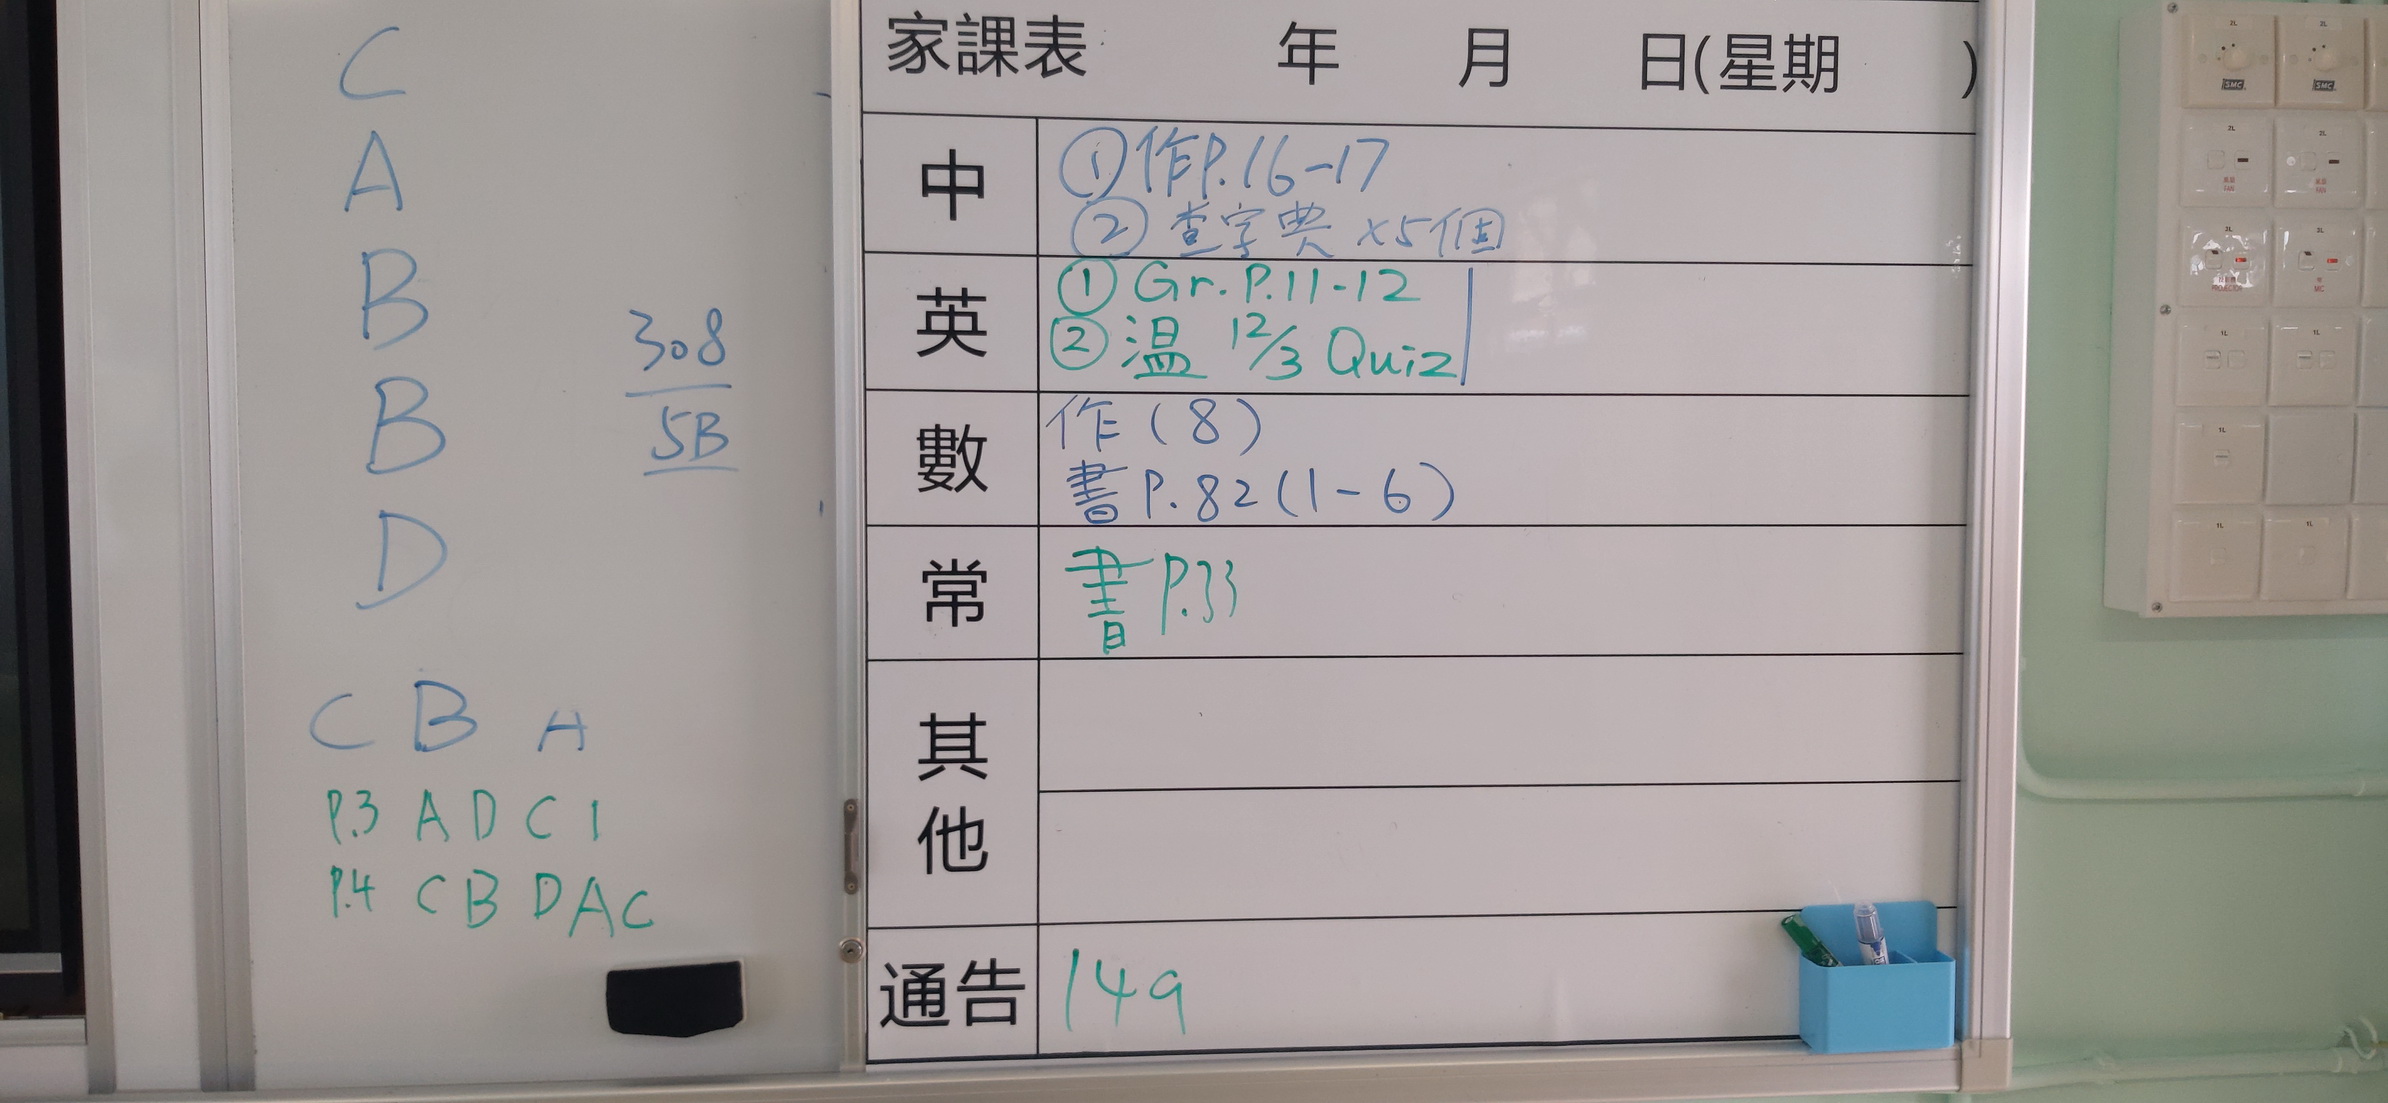 C
A
B
B
D
308
5B
C B A
P.3 A D C 1
P.4 C B D A C
家課表 年 月 日(星期 )
中
①作P.16-17
②查字典 x5個
英
① Gr. P.11-12
② 溫 12/3 Quiz
數
作(8)
書P.82(1-6)
常
書P.33
其他
通告
149